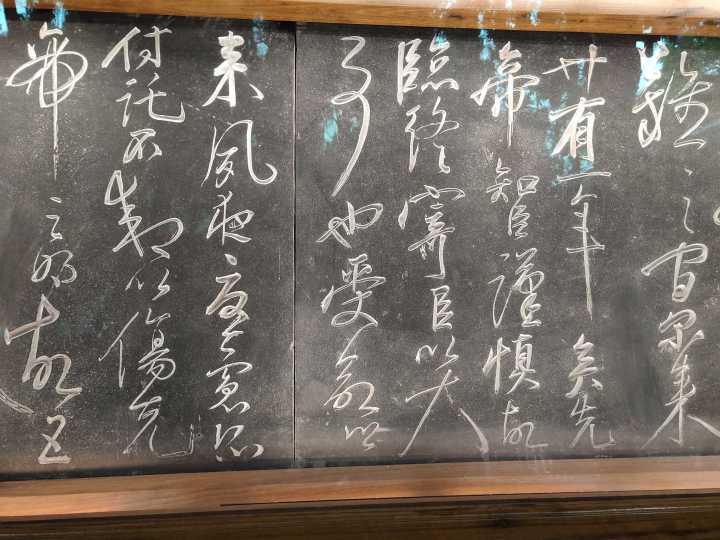 難之間爾来
廿有一年矣先
帝知臣謹慎故
臨終寄臣以大
事也受命以
来夙夜憂慮恐
付託不效以傷先
帝之明故五